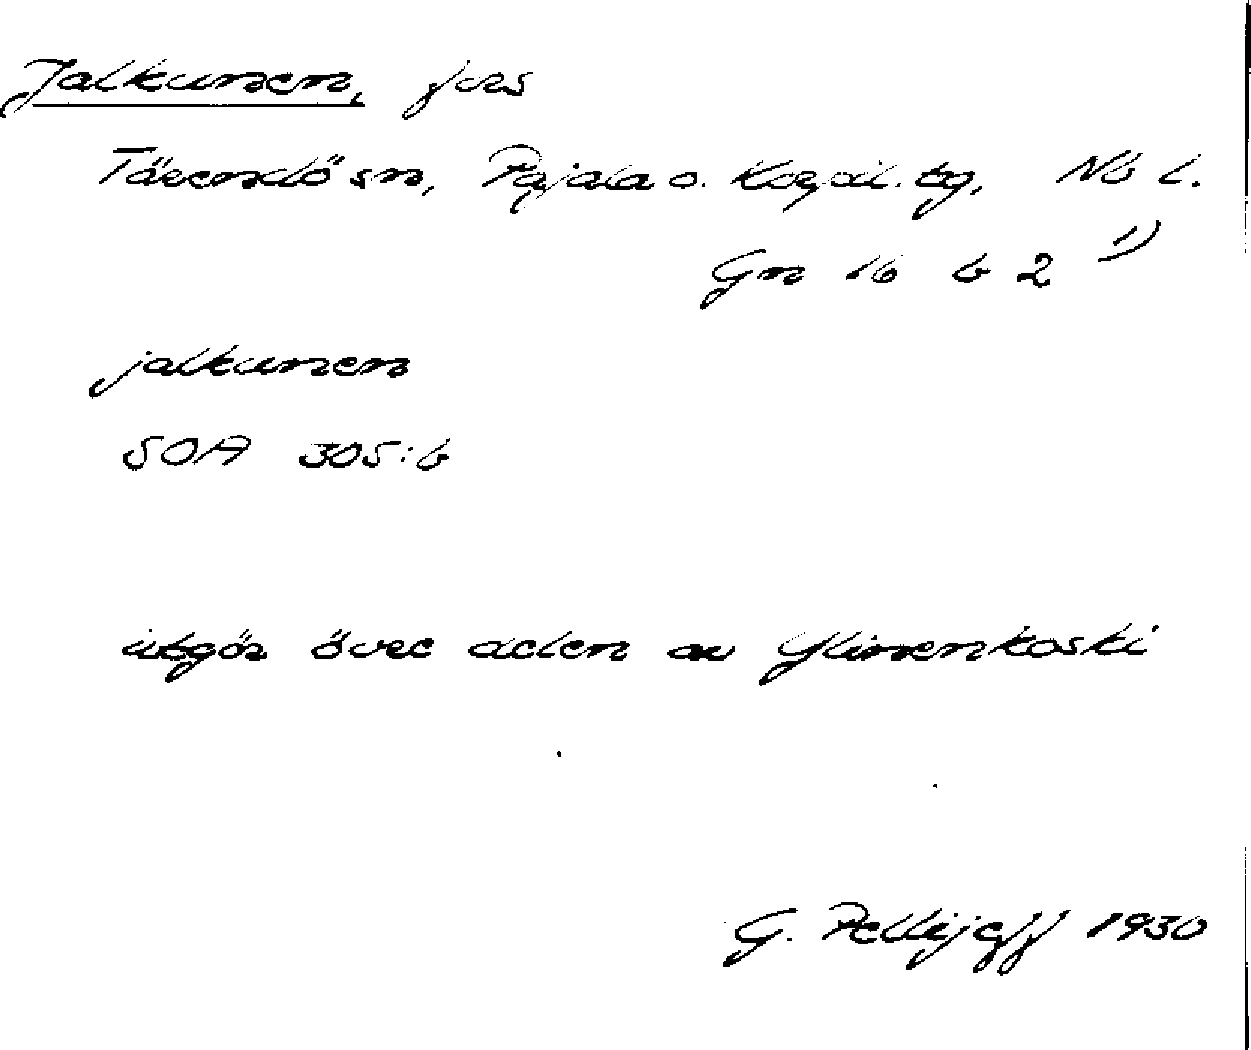 Jalkunen, fors
Tärendö sn, Pajala o. Korpil. tg, Nb l.
Gn 16 b 2 1)
jalkunen
SOA 305:b
utgör övre delen av Ylinenkoski
G. Pellijeff 1930